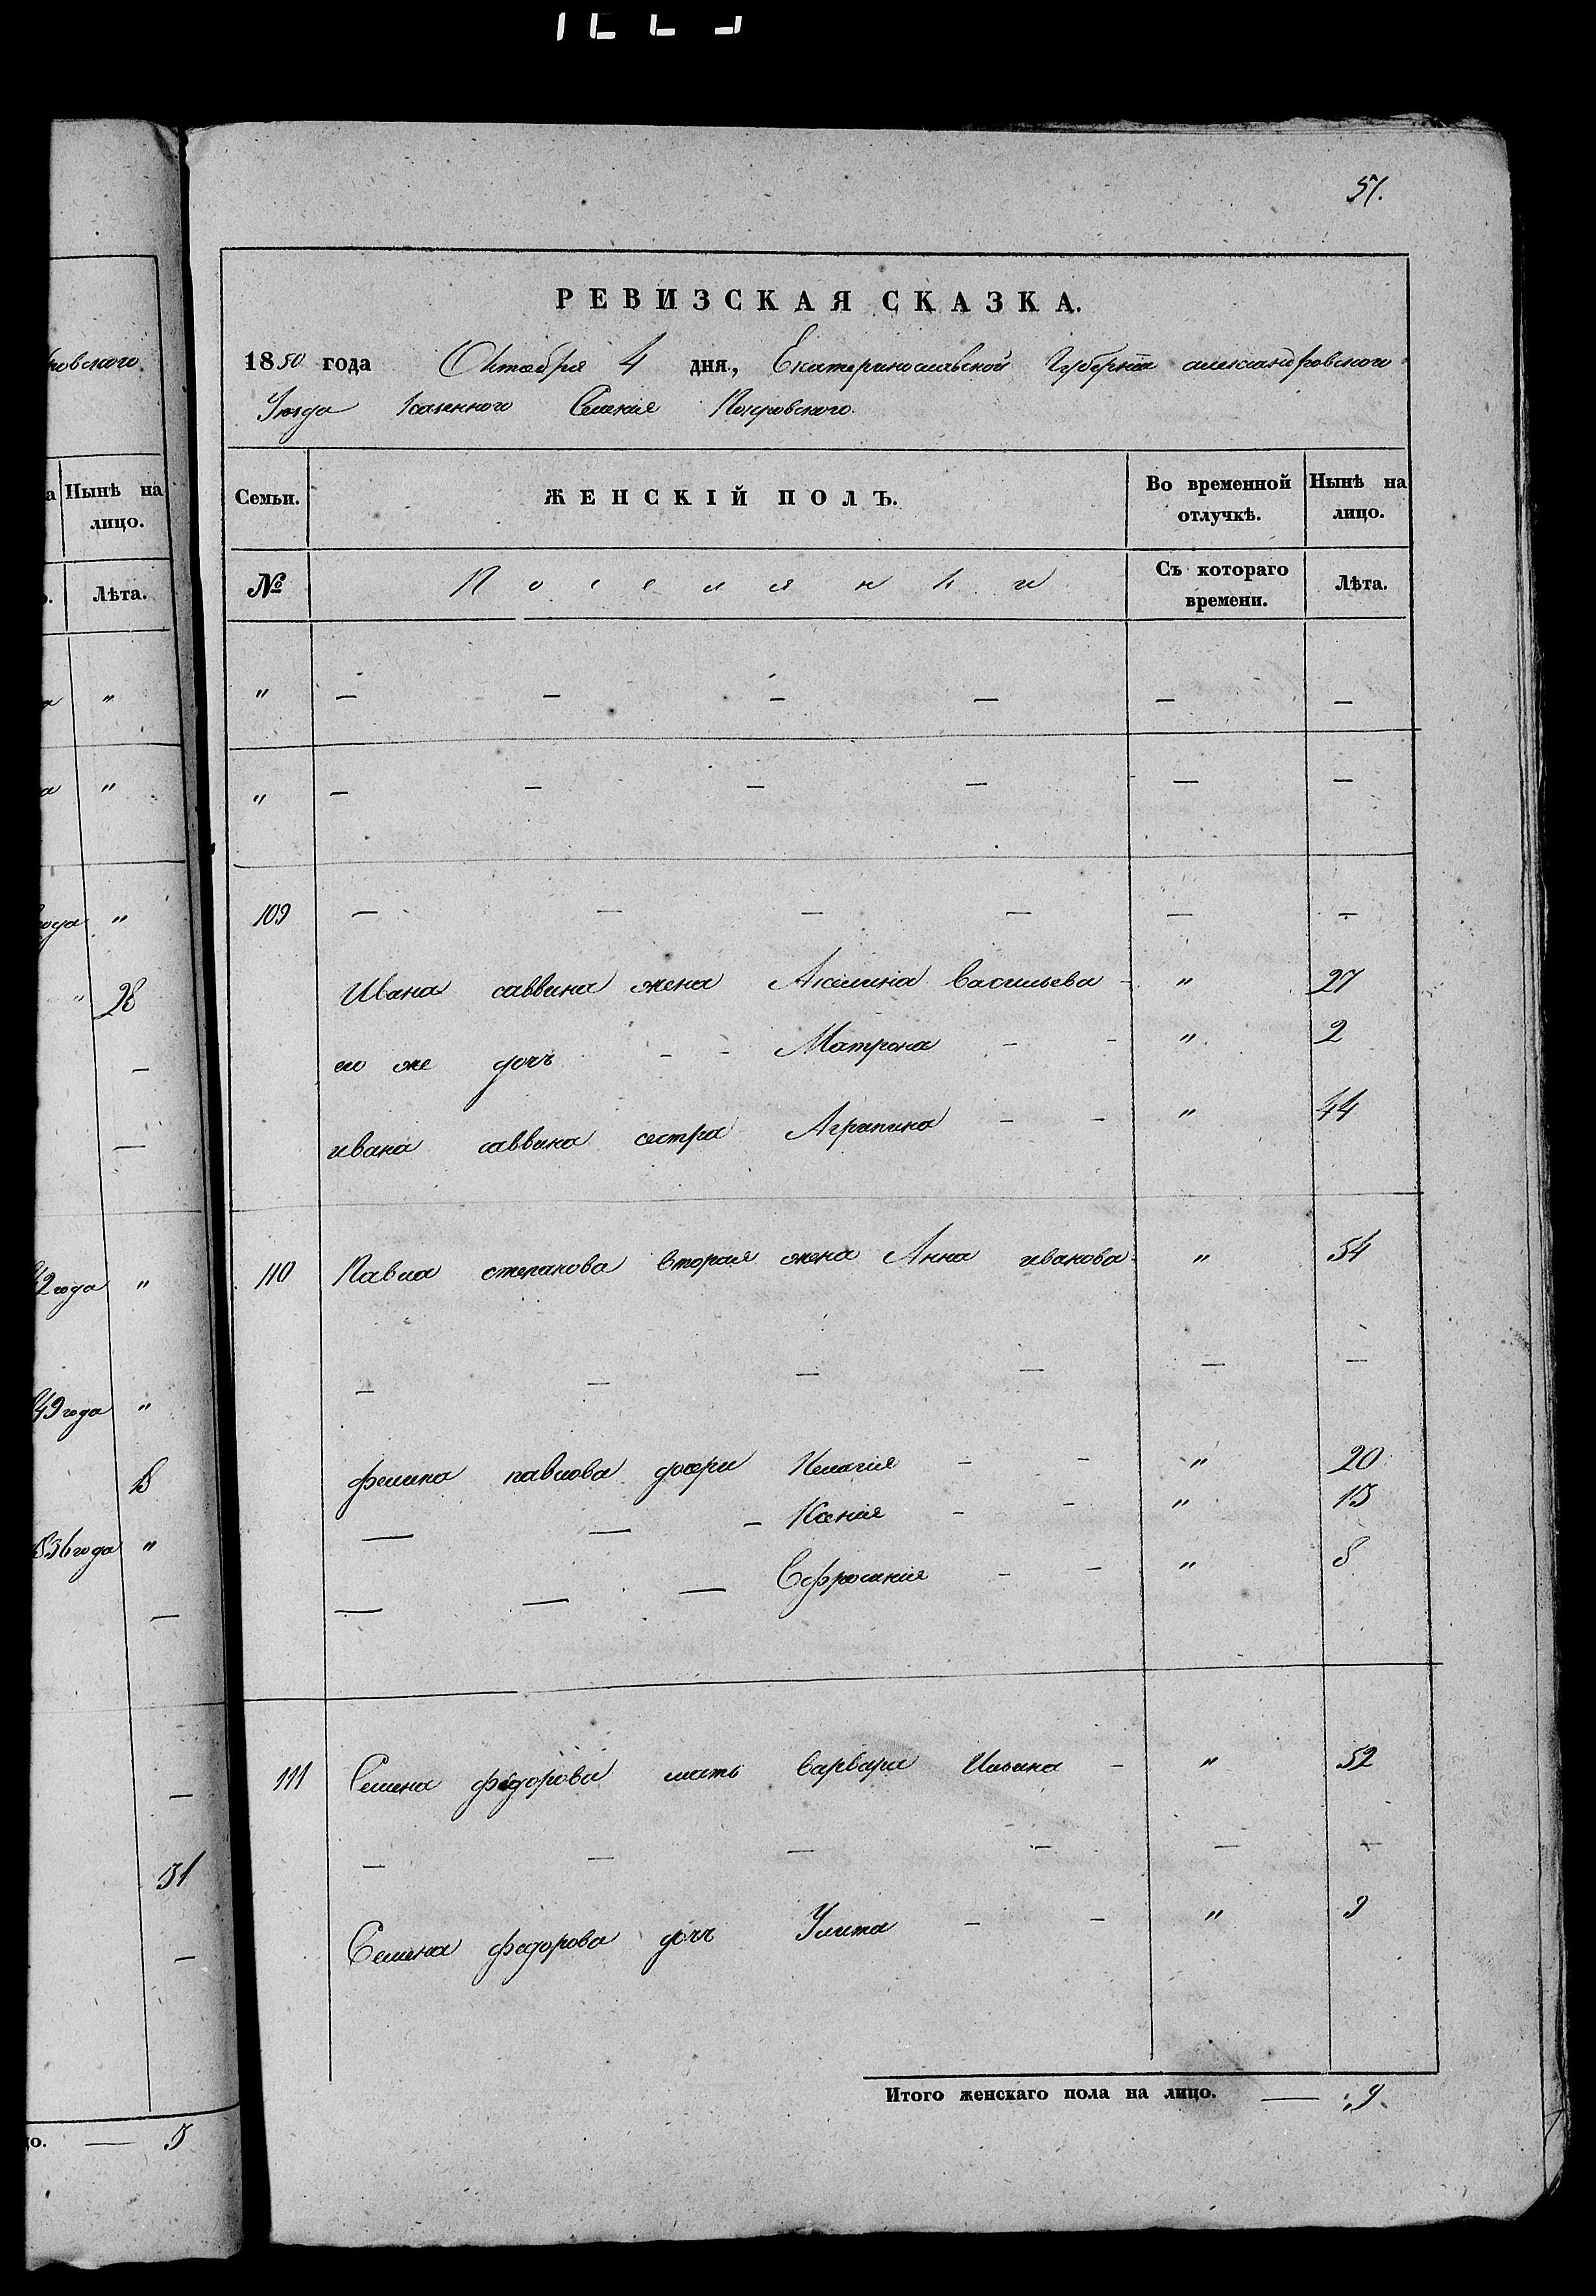 51.
РЕВИЗСКАЯ СКАЗКА.
1850 года Октября 4 дня, Екатеринославской Губернии александровского
Уезда Казенного Селения Покровского.
ровского
а Нынѣ на лицо.
Лѣта.
Семьи. ЖЕНСКІЙ ПОЛЪ. Во временной отлучкѣ. Нынѣ на лицо.
№ Поселянки Съ котораго времени. Лѣта.
" — — — — — —
" — — — — — —
года "
109 — — — — — —
28
Ивана саввина жена Акилина Васильева - " 27
его же дочь - - Матрона - - " 2
ивана саввина сестра Агрипина - - " 44
42 года "
110 Павла степанова вторая жена Анна иванова " 54
— — — — — —
49 года "
18
филипа павлова дочери Пелагия - - " 20
— — — Ксения - - " 15
836 года "
— — — Ефросиния - - " 8
111 Семена федорова мать варвара Ильина - " 52
— — — — — —
31
Семена федорова дочь Улита - - " 9
Итого женскаго пола на лицо. — 9
о. — 5